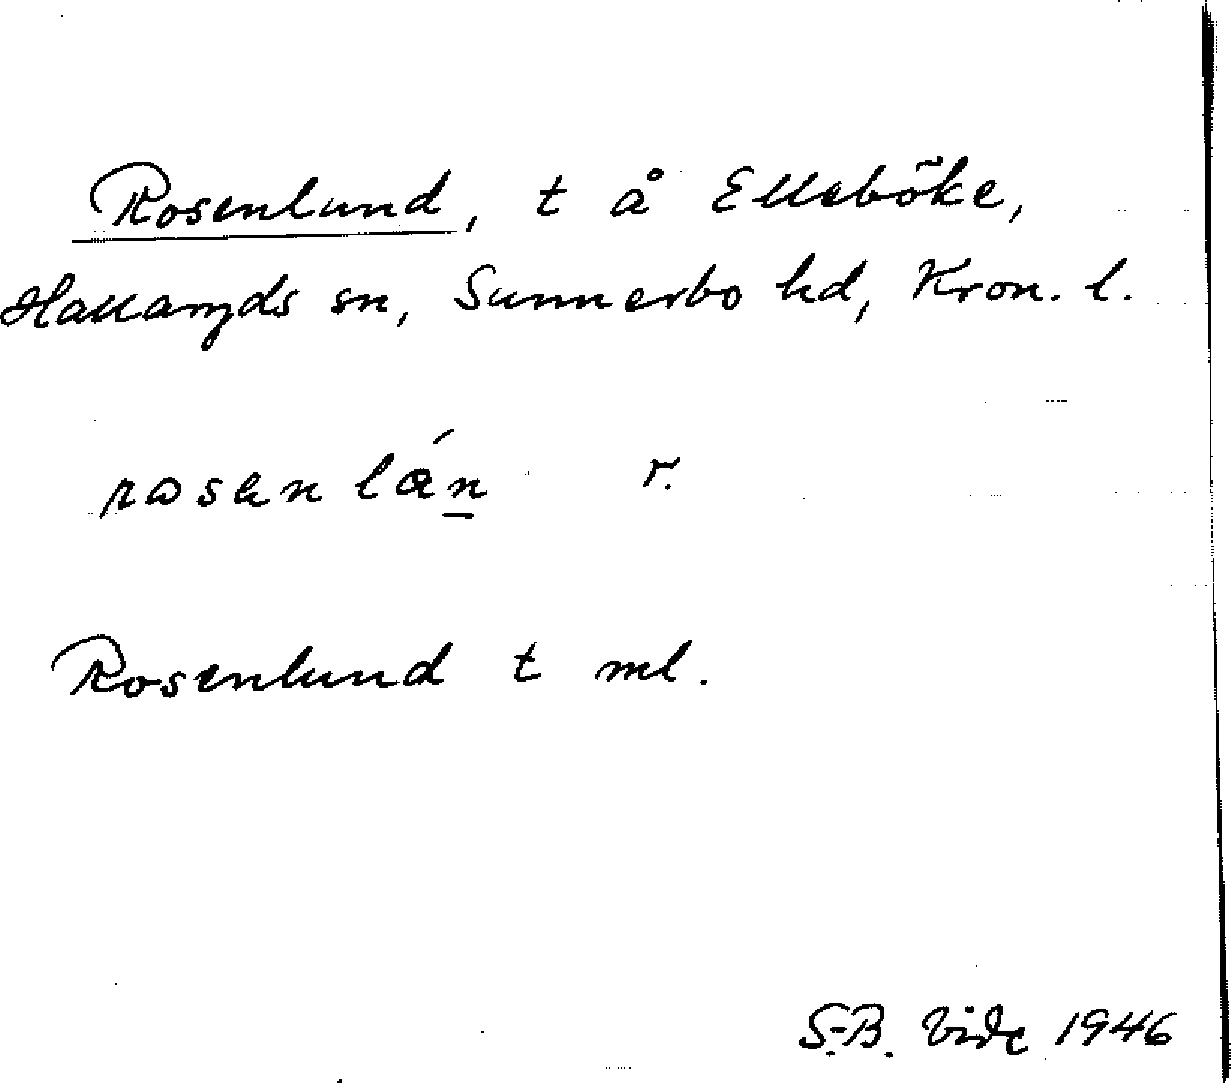 Rosenlund, t å Elleböke,
Hallaryds sn, Sunnerbo hd, Kron. l.
r.
Rosenlund t ml.
S.-B. Vide 1946